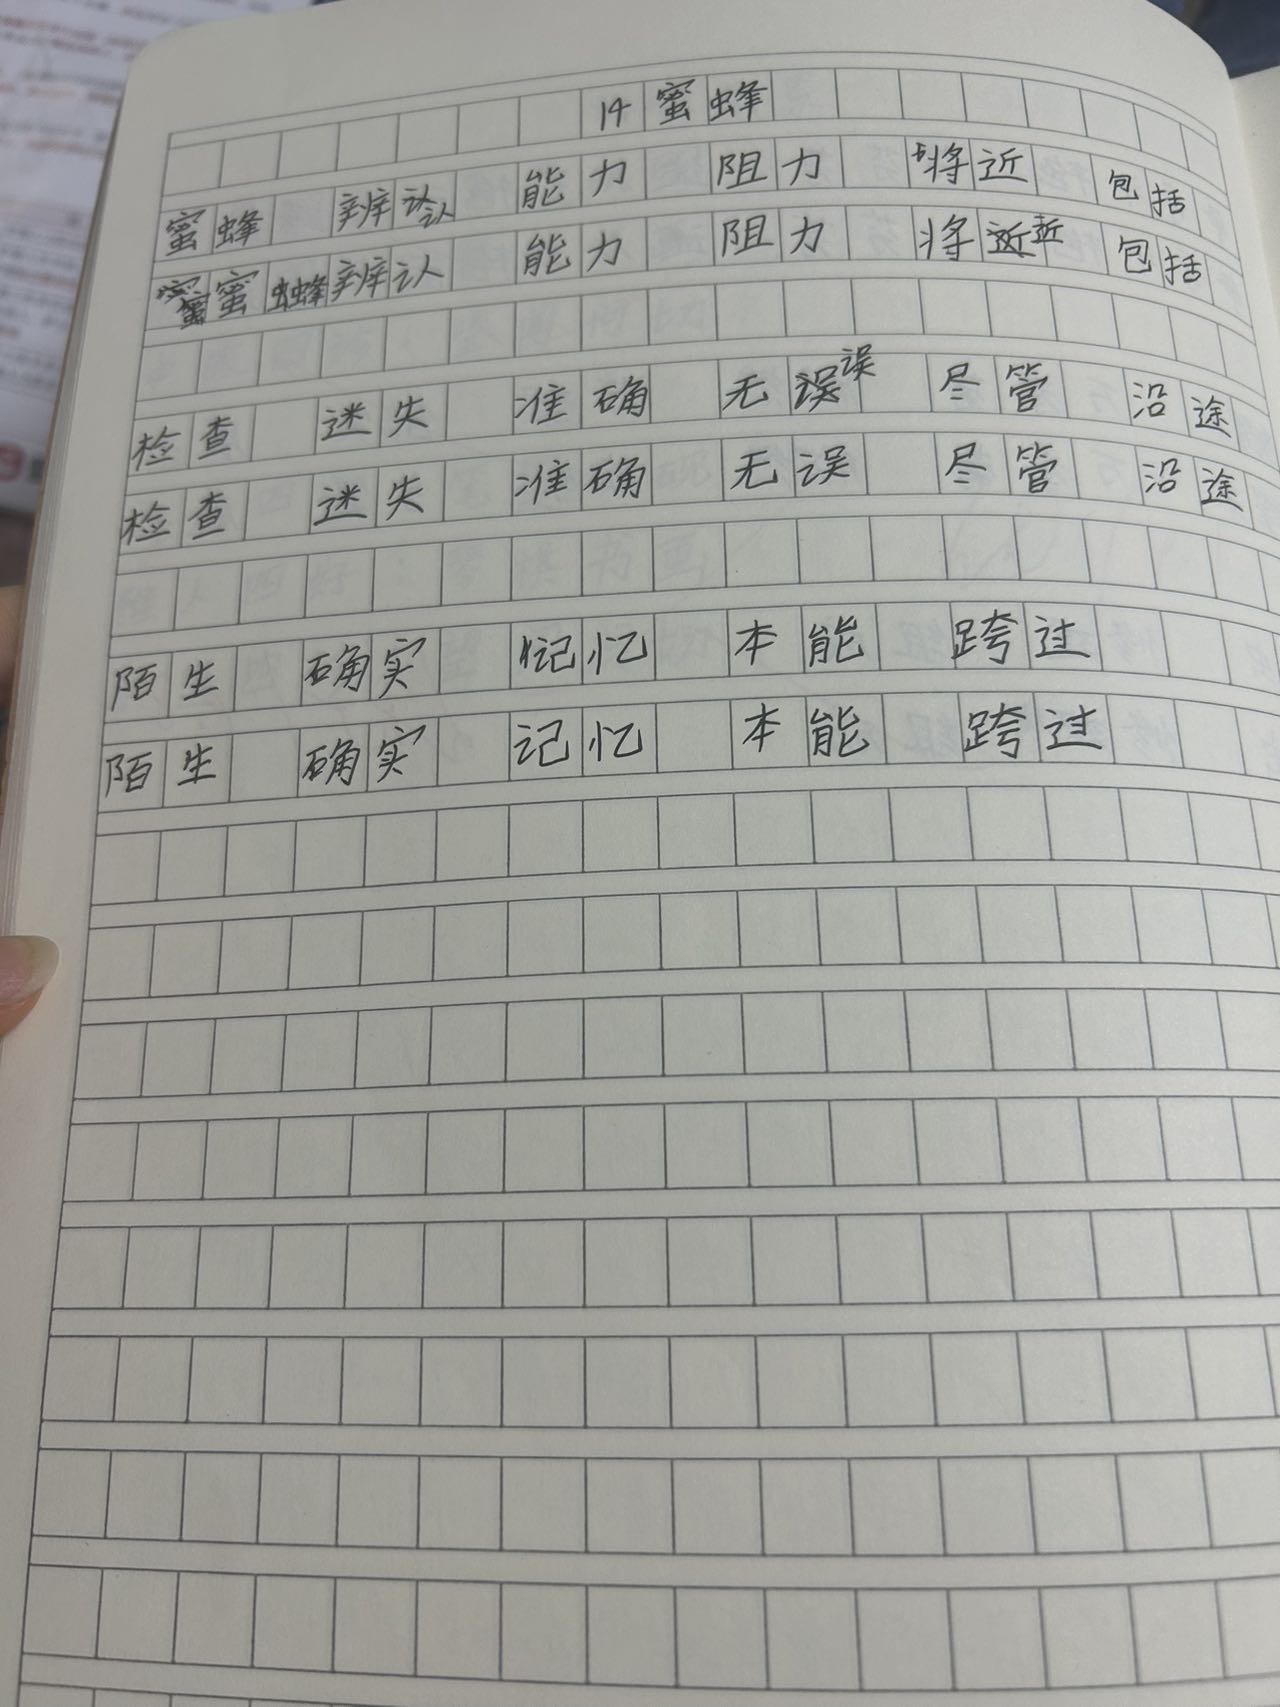 14 蜜蜂
蜜蜂 辨认 能力 阻力 将近 包括
蜜蜂 辨认 能力 阻力 将近 包括
检查 迷失 准确 无误 尽管 沿途
检查 迷失 准确 无误 尽管 沿途
陌生 确实 记忆 本能 跨过
陌生 确实 记忆 本能 跨过